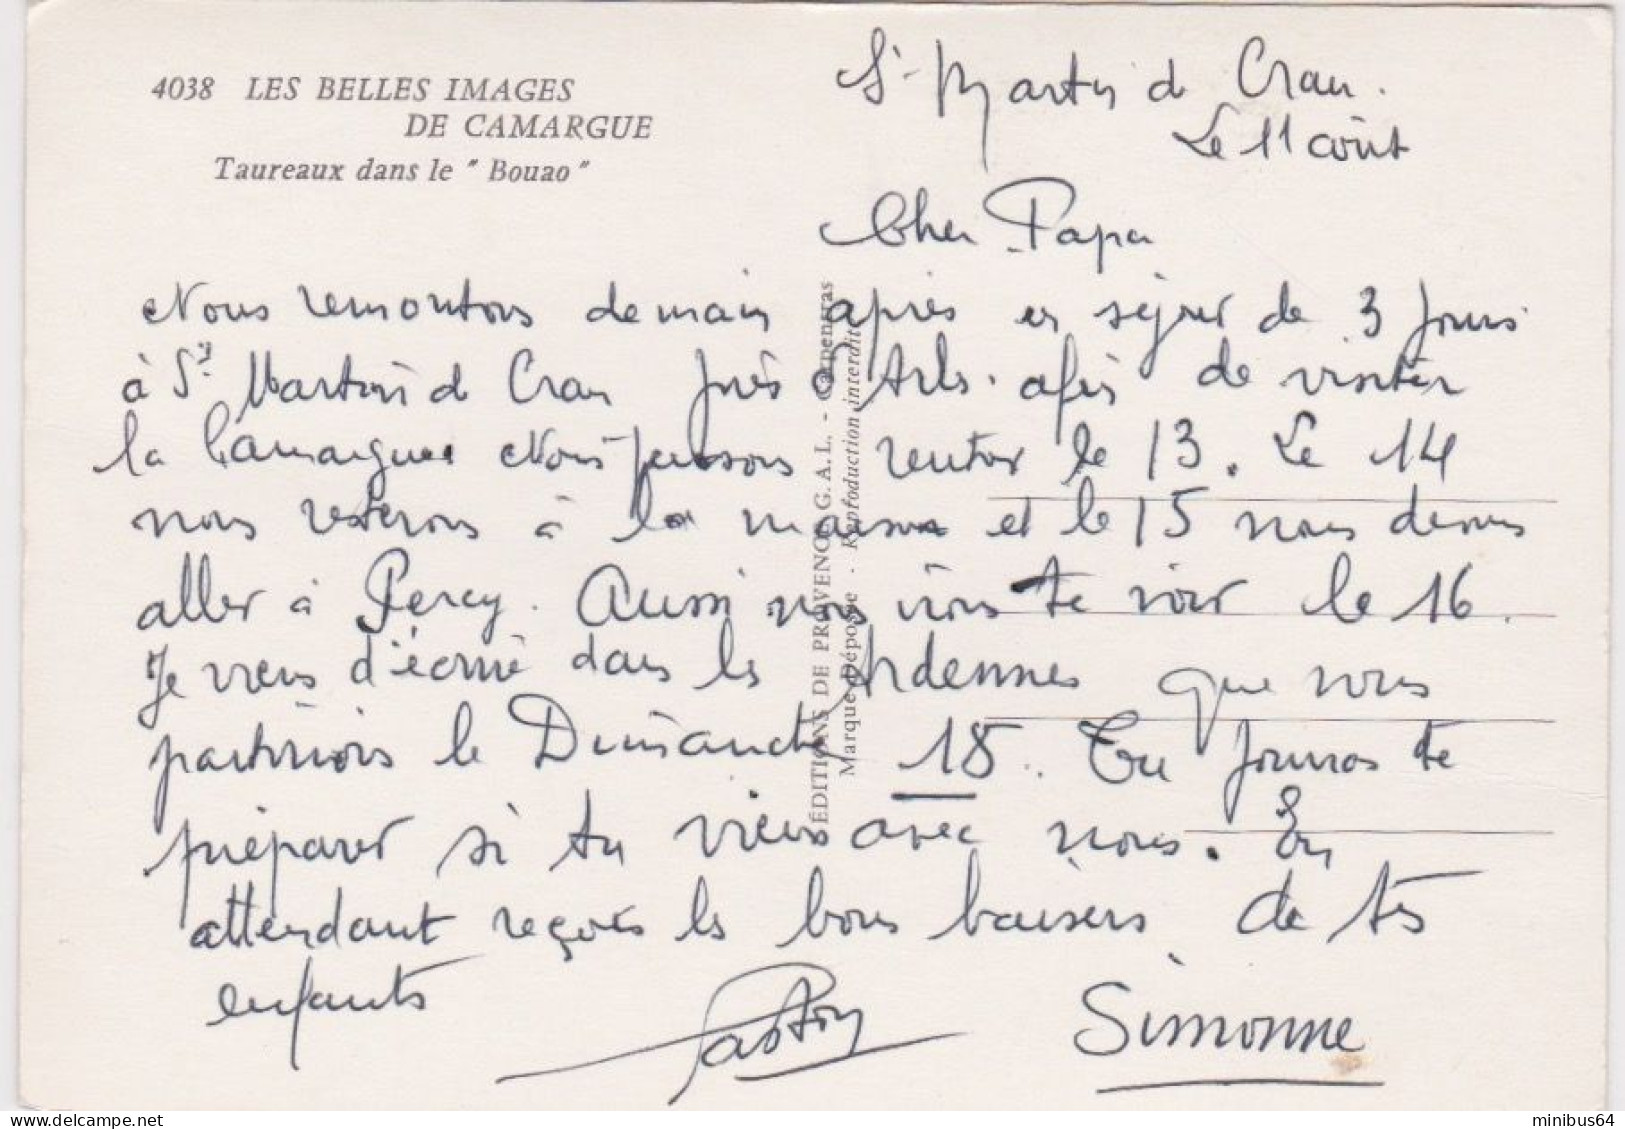 4038 LES BELLES IMAGES
DE CAMARGUE
Taureaux dans le " Bouao "
St Martin de Crau.
Le 11 août
Cher Papa
Nous remontons demain après un séjour de 3 jours
à St Martin de Crau près Arles. afin de visiter
la Camargue Nous pensons rentrer le 13. Le 14
nous resterons à la maison et le 15 nous devons
aller à Percy. Aussi nous irons te voir le 16.
Je viens d'écrire dans les Ardennes que nous
partirions le Dimanche 18. Tu pourras te
préparer si tu viens avec nous. En
attendant reçois les bons baisers de tes
enfants
Gaston Simonne
ÉDITIONS DE PROVENCE G.A.L. - Carpentras
Marque Déposée - Reproduction interdite
delcampe.net
minibus64